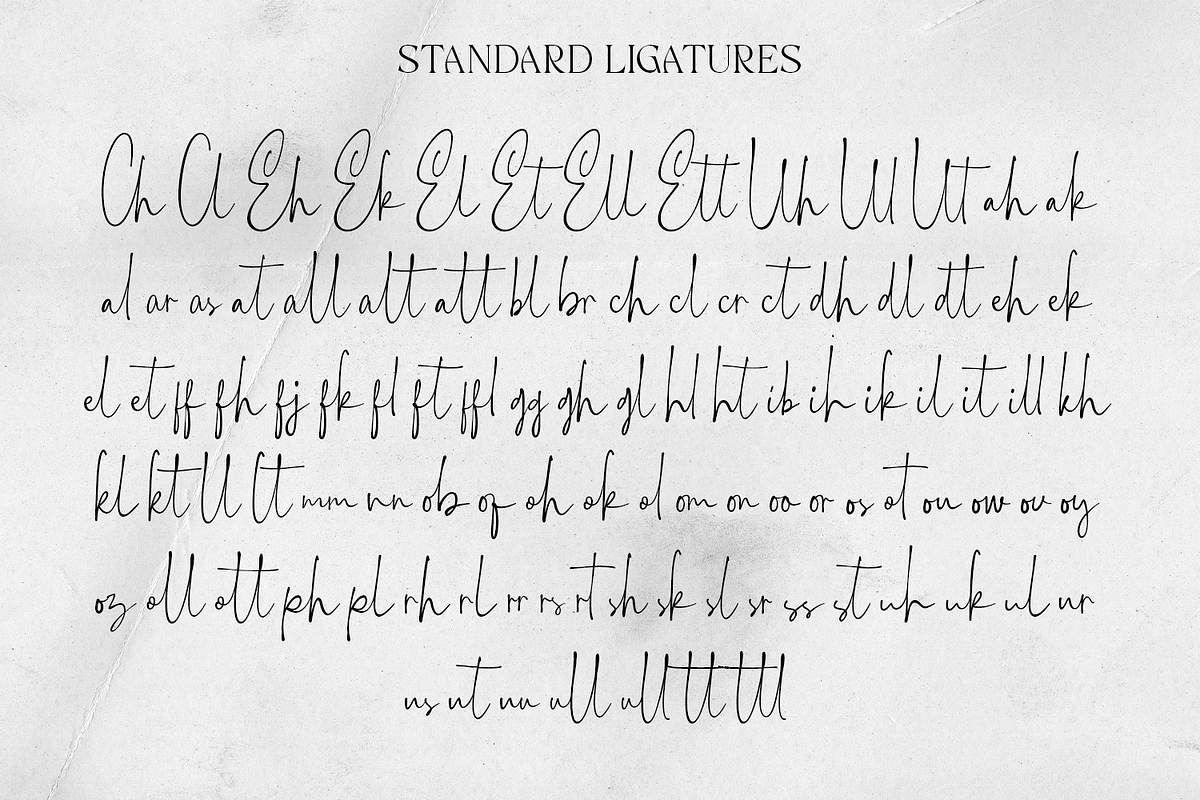 STANDARD LIGATURES
Ch Cl Eh Ek El Et Ell Ett Uh Ul Ut ah ak
al ar as at all alt att bl br ch cl cr ct dh dl dt eh ek
el et ff fh fj fk fl ft ffl gg gh gl hl ht ib ih ik il it ill kh
kl kt ll lt mm nn ob of oh ok ol om on oo or os ot ou ow ov oy
oz oll ott ph pl rh rl rr rs rt sh sk sl sr ss st uh uk ul ur
us ut uu ull tt